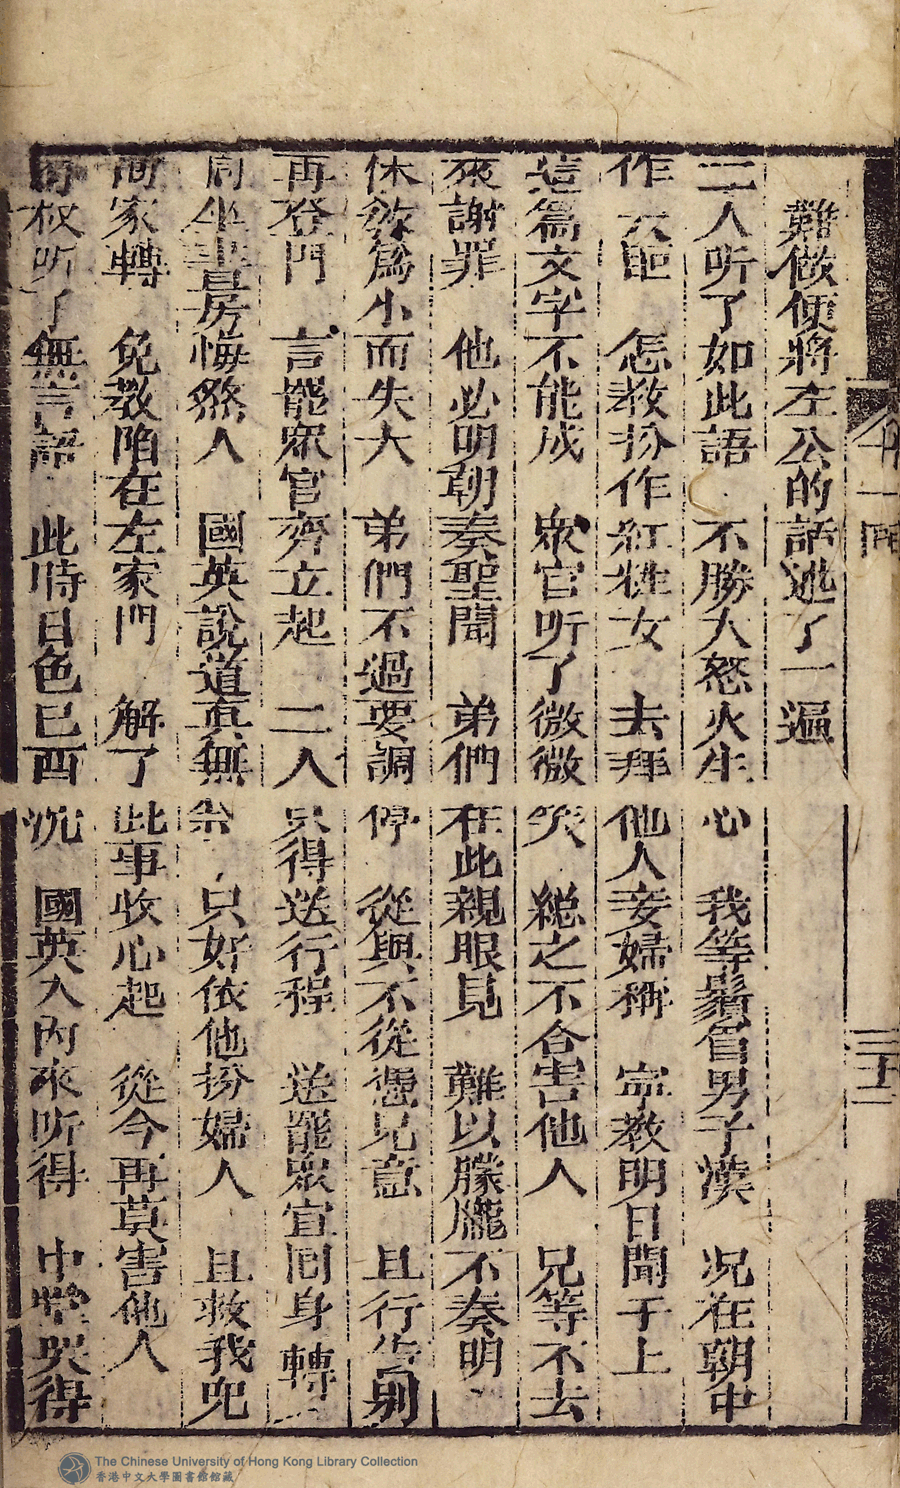 難做便將左公的話逃了一遍
二人听了如此語 不勝大怒火生心 我等鬚眉男子漢 况在朝中
作大臣 怎教扮作紅粧女 去拜他人妾婦稱 寧教明日聞于上
這篇文字不能成 衆官听了微微笑 縂之不合害他人 兄等不去
來謝罪 他必明朝奏聖聞 弟們在此親眼見 難以朦朧不奏明
休教爲小而失大 弟們不過要調停 從與不從憑兄意 且行告别
再登門 言罷眾官齊立起 二人只得送行程 送罷眾官回身轉
同坐書房悔煞人 國英說道真無 只好依他扮婦人 且救我兒
家轉 免教陷在左家門 解了此事收心起 從今再莫害他人
权听了無言語 此時日色已西沉 國英入內來听得 中堂哭得
一回
三十二
The Chinese University of Hong Kong Library Collection
香港中文大學圖書館館藏